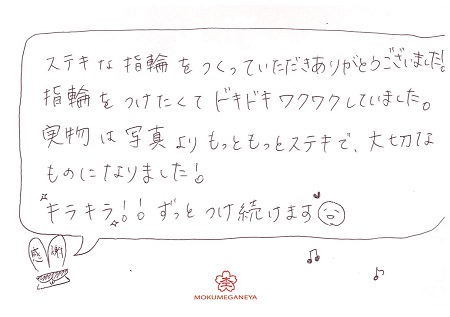 ステキな指輪をつくっていただきありがとうございました!
指輪をつけたくてドキドキワクワクしていました。
実物は写真よりもっともっとステキで、大切な
ものになりました!
キラキラ!!ずっとつけ続けます
感謝
MOKUMEGANEYA